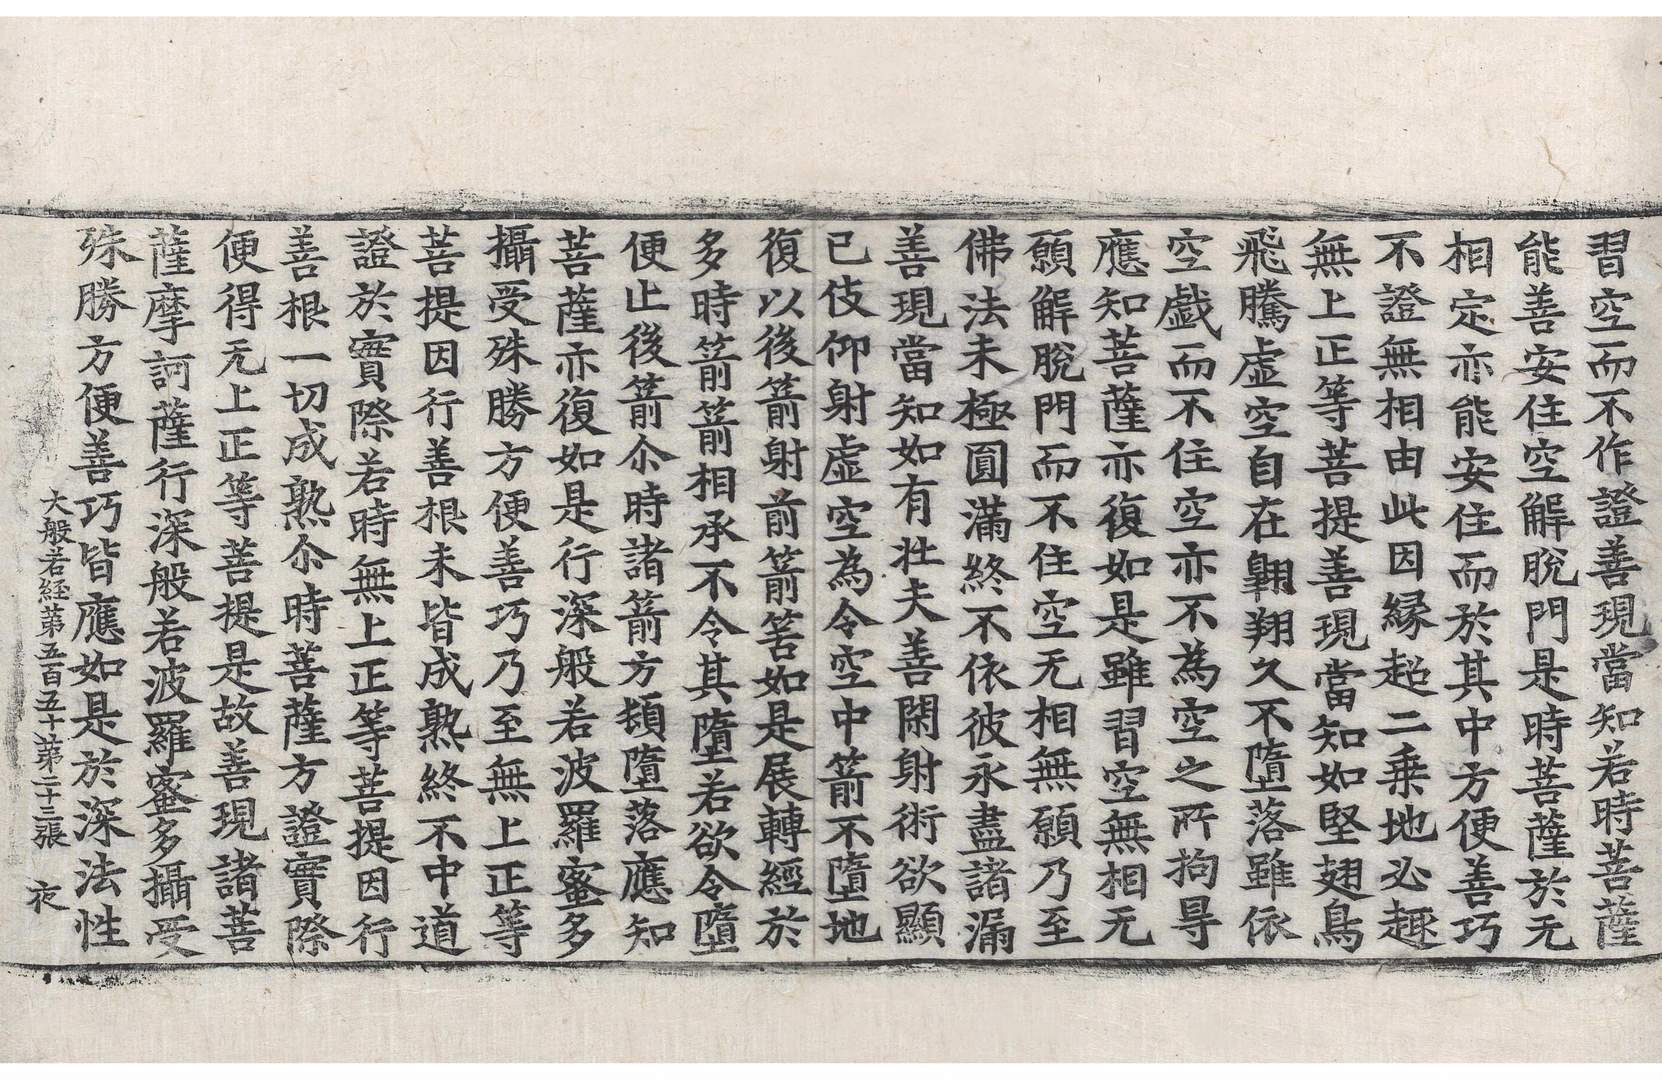 習空而不作證善現當知若時菩薩
能善安住空解脫門是時菩薩於无
相定亦能安住而於其中方便善巧
不證無相由此因縁超二乗地必趣
無上正等菩提善現當知如堅翅鳥
飛騰虛空自在翺翔久不墮落雖依
空戲而不住空亦不為空之所拘㝵
應知菩薩亦復如是雖習空無相无
願解脫門而不住空无相無願乃至
佛法未極圓滿終不依彼永盡諸漏
善現當知如有壯夫善閑射術欲顯
已伎仰射虛空為令空中箭不墮地
復以後箭射前箭筈如是展轉經於
多時箭箭相承不令其墮若欲令墮
便止後箭尒時諸箭方頓墮落應知
菩薩亦復如是行深般若波羅蜜多
攝受殊勝方便善巧乃至無上正等
菩提因行善根未皆成熟終不中道
證於實際若時無上正等菩提因行
善根一切成熟尒時菩薩方證實際
便得无上正等菩提是故善現諸菩
薩摩訶薩行深般若波羅蜜多攝受
殊勝方便善巧皆應如是於深法性
大般若経苐五百五十苐二十三張 夜